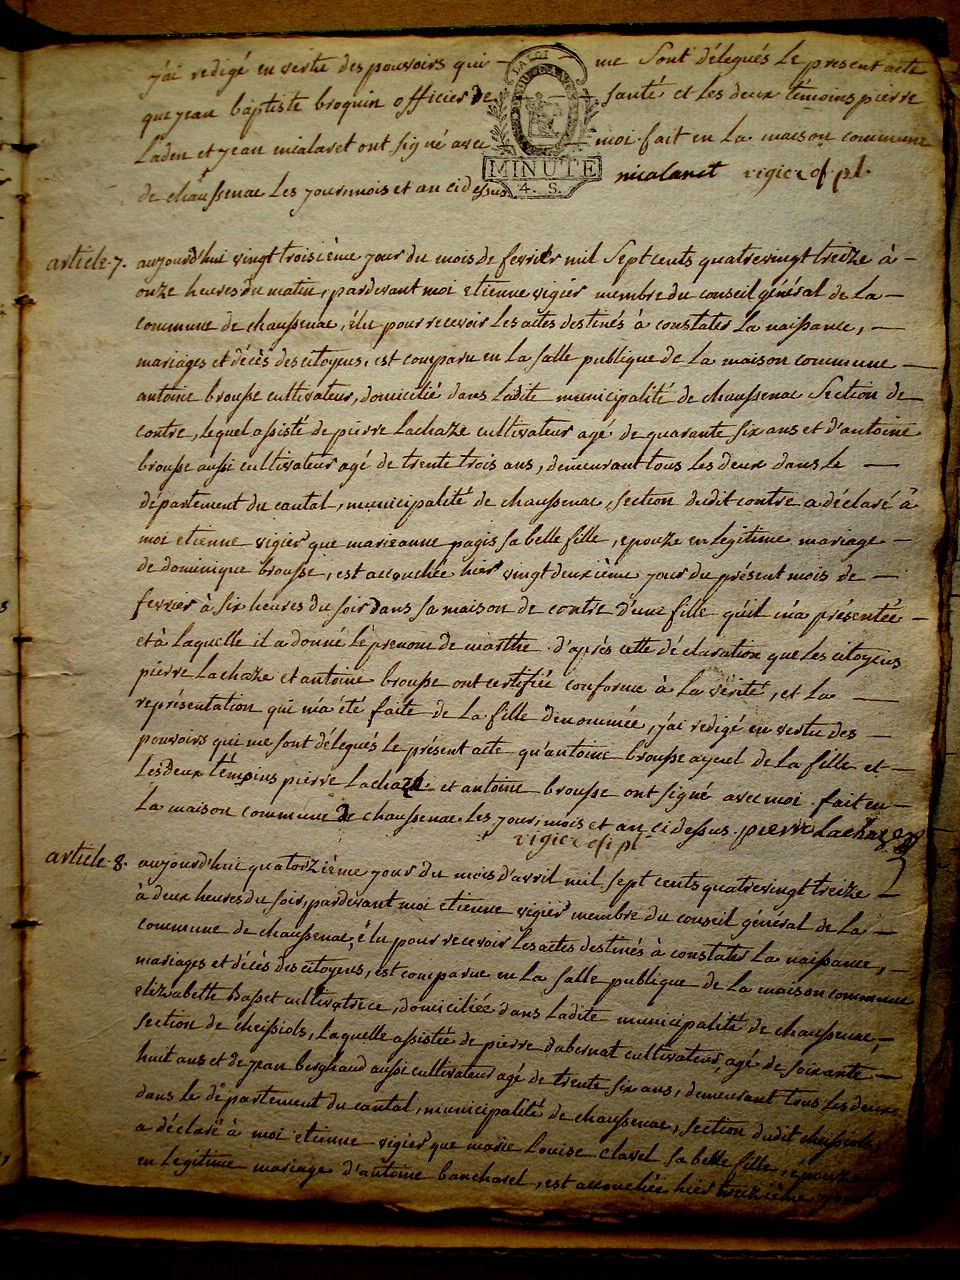 j'ai redigé en vertu des pouvoirs qui — me sont délegués le present acte
que jean baptiste broquin officier de — santé et les deux témoins pierre
et jean malaret ont signé avec — moi. fait en la maison commune
de chaussenac les jour, mois et an cidessus. malaret vigier of. pl.
LA LOI
MINUTE
4. S.
article 7. aujourd'hui vingt troisième jour du mois de fevrier mil sept cents quatrevingt treize à —
onze heures du matin, pardevant moi etienne vigier membre du conseil général de la —
commune de chaussenac, élu pour recevoir les actes destinés à constater la naissance, —
mariages et décès des citoyens, est comparu en la salle publique de la maison commune —
antoine brousse cultivateur, domicilié dans ladite municipalité de chaussenac section de —
contre, lequel assisté de pierre lachaze cultivateur agé de quarante six ans et d'antoine
brousse aussi cultivateur agé de trente trois ans, demeurant tous les deux dans le —
département du cantal, municipalité de chaussenac, section dudit contre a déclaré à
moi etienne vigier que marieanne pagis sa belle fille, epouze en legitime mariage —
de dominique brousse, est accouchée hier vingt deuxième jour du présent mois de —
fevrier à six heures du soir dans sa maison de contre d'une fille qu'il m'a présentée —
et à laquelle il a donné le prenom de marthe. d'après cette déclaration que les citoyens
pierre lachaze et antoine brousse ont certifiée conforme à la verité, et la —
représentation qui m'a été faite de la fille dénommée, j'ai redigé en vertu des —
pouvoirs qui me sont délegués le présent acte qu'antoine brousse ayeul de la fille et —
les deux témoins pierre lachaze et antoine brousse ont signé avec moi. fait en —
la maison commune de chaussenac les jour, mois et an cidessus. pierre lachaze
vigier of. pl.
article 8. aujourd'hui quatorzième jour du mois d'avril mil sept cents quatrevingt treize —
à deux heures du soir, pardevant moi etienne vigier membre du conseil général de la —
commune de chaussenac, élu pour recevoir les actes destinés à constater la naissance, —
mariages et décès des citoyens, est comparue en la salle publique de la maison commune
elizabeth basset cultivatrice, domiciliée dans ladite municipalité de chaussenac, —
section de cheissiols, laquelle assistée de pierre dabernat cultivateur, agé de soixante —
huit ans et de jean berghaud aussi cultivateur agé de trente six ans, demeurant tous les deux
dans le département du cantal, municipalité de chaussenac, section dudit cheissiols,
a déclaré à moi etienne vigier que marie louise clavel sa belle fille, épouze
en legitime mariage d'antoine bancharel, est accouchée hier treizième jour